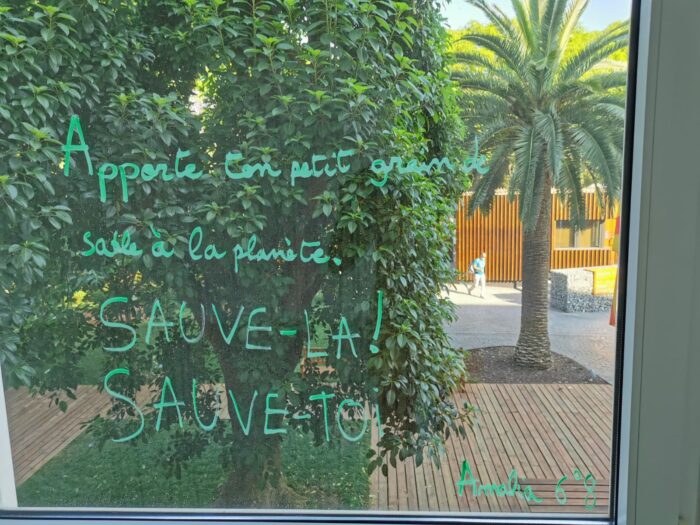 Apporte ton petit grain de
sable à la planète.
SAUVE-LA!
SAUVE-TOi
Amalia 6°8